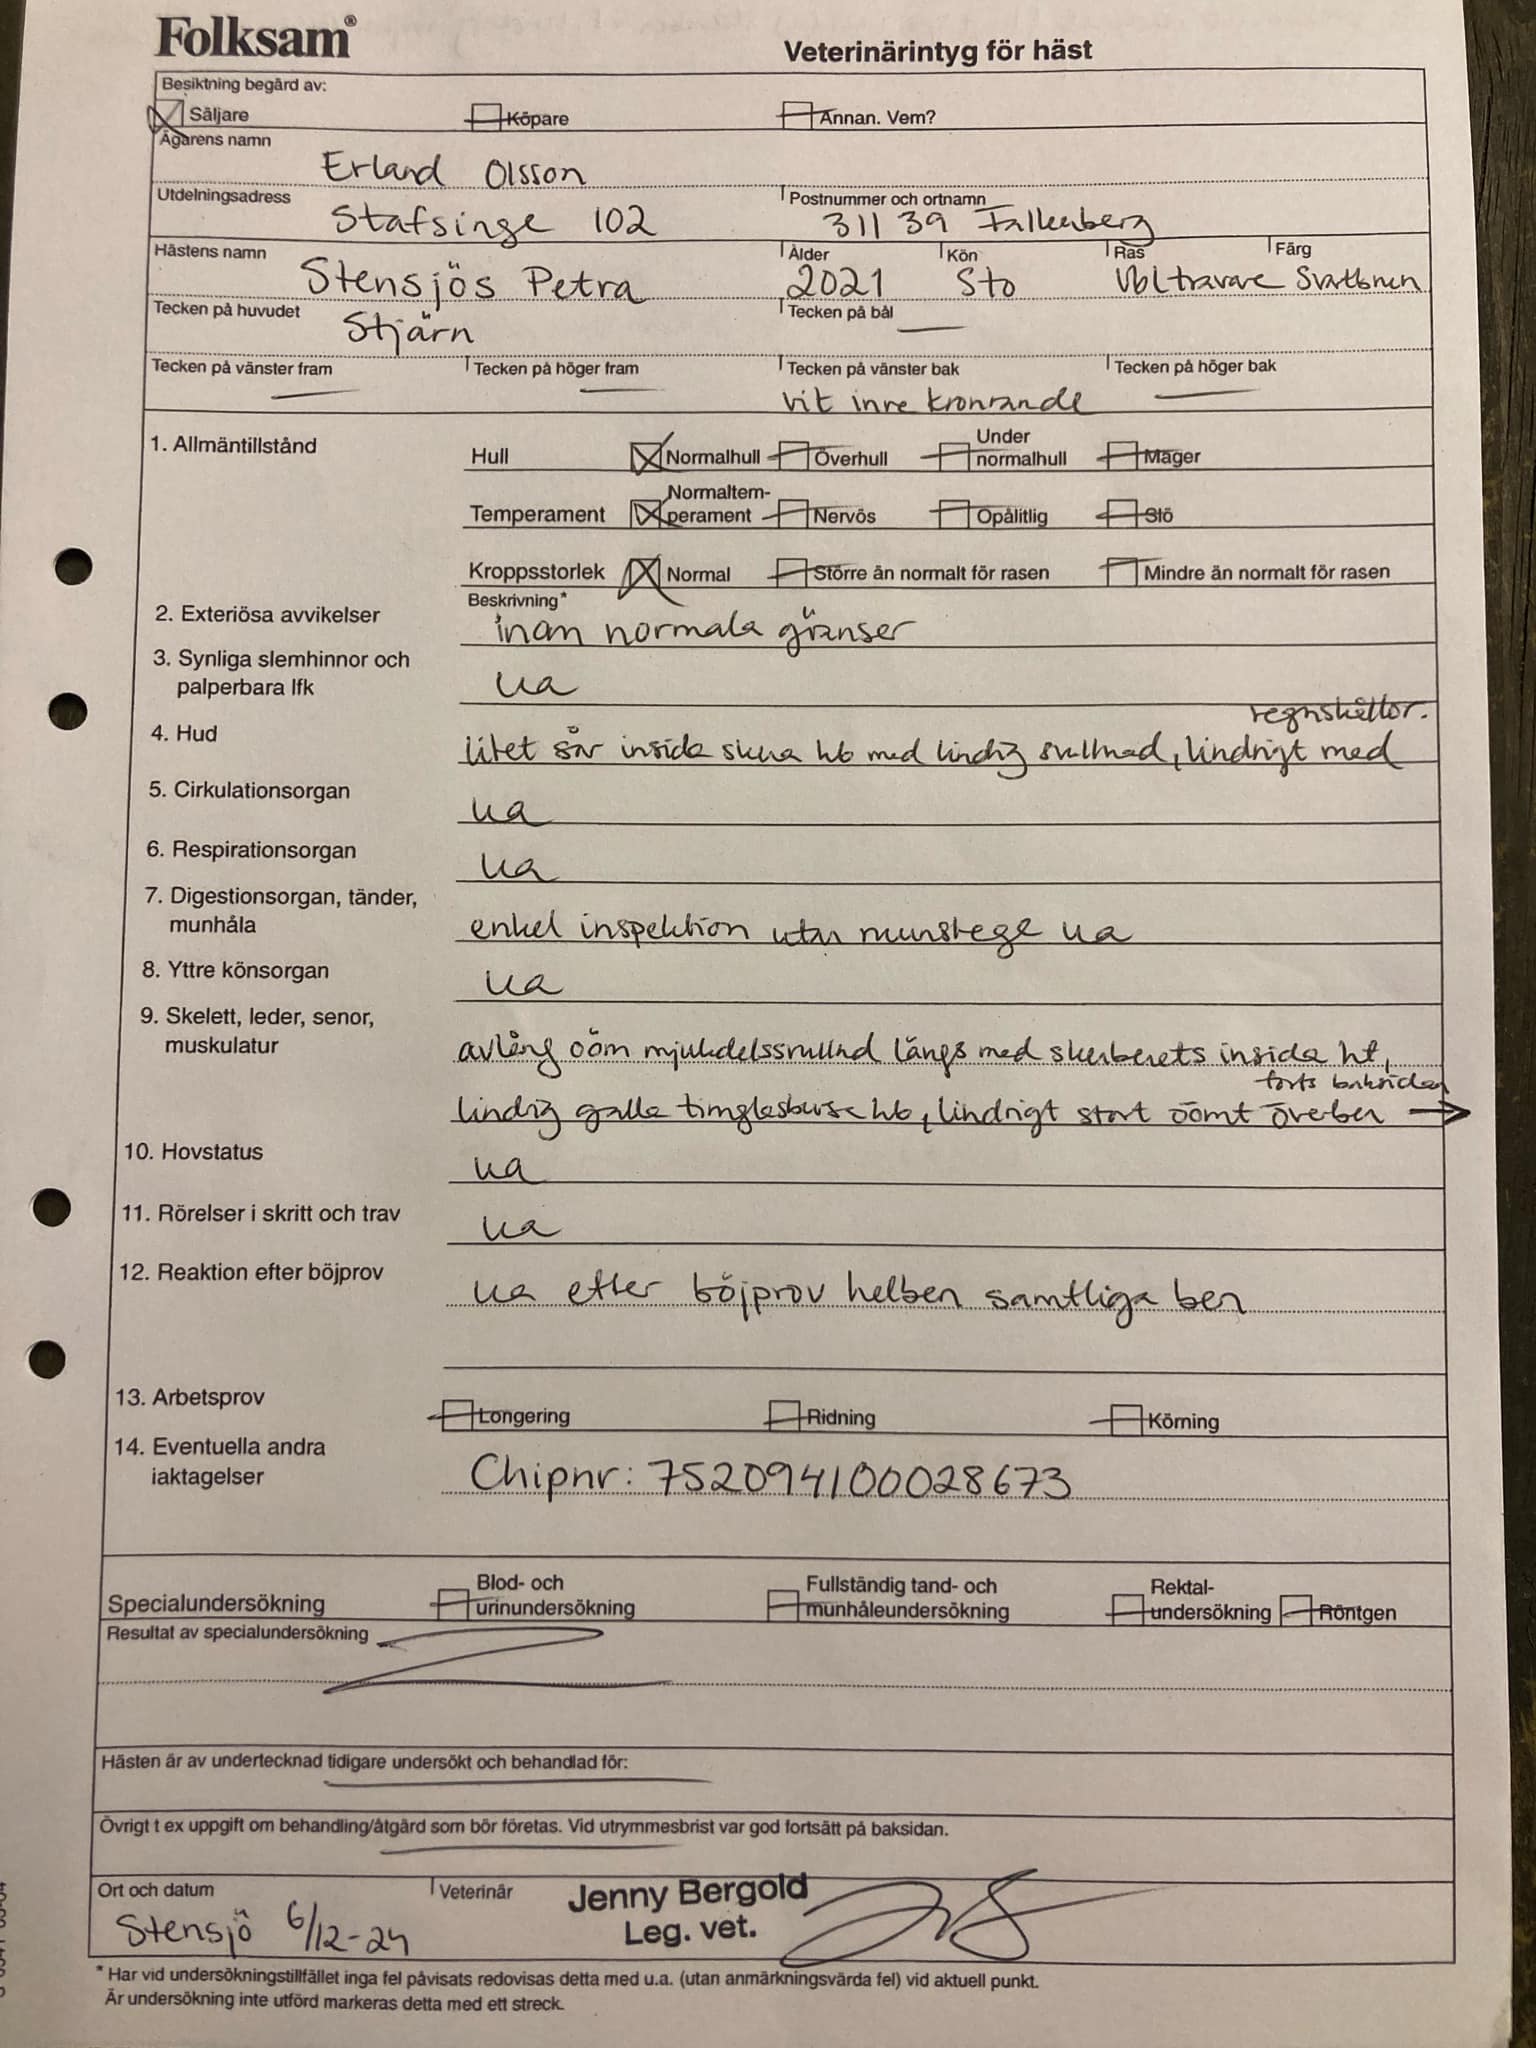 Folksam®
Veterinärintyg för häst
Besiktning begärd av:
Säljare Köpare Annan. Vem?
Ägarens namn
Erland Olsson
Utdelningsadress Postnummer och ortnamn
Stafsinge 102 311 39 Falkenberg
Hästens namn Ålder Kön Ras Färg
Stensjös Petra 2021 Sto Vbltravare Svartbrun
Tecken på huvudet Tecken på bål
Stjärn
Tecken på vänster fram Tecken på höger fram Tecken på vänster bak Tecken på höger bak
vit inre kronrande
1. Allmäntillstånd Hull Normalhull Överhull Under normalhull Mager
Temperament Normaltem-perament Nervös Opålitlig Slö
Kroppsstorlek Normal Större än normalt för rasen Mindre än normalt för rasen
Beskrivning*
2. Exteriösa avvikelser inom normala gränser
3. Synliga slemhinnor och
palperbara lfk ua
regnskållor.
4. Hud litet sår insida skena hb med lindrig svullnad, lindrigt med
5. Cirkulationsorgan ua
6. Respirationsorgan ua
7. Digestionsorgan, tänder,
munhåla enkel inspektion utan munstege ua
8. Yttre könsorgan ua
9. Skelett, leder, senor,
muskulatur avlång oöm mjukdelssvullnad längs med skenbenets insida
forts baksidan
lindrig galla timglasbursa hb, lindrigt stort oömt överben →
10. Hovstatus ua
11. Rörelser i skritt och trav ua
12. Reaktion efter böjprov ua efter böjprov helben samtliga ben
13. Arbetsprov Longering Ridning Körning
14. Eventuella andra
iaktagelser Chipnr: 752094100028673
Specialundersökning Blod- och urinundersökning Fullständig tand- och munhåleundersökning Rektal-undersökning Röntgen
Resultat av specialundersökning
Hästen är av undertecknad tidigare undersökt och behandlad för:
Övrigt t ex uppgift om behandling/åtgärd som bör företas. Vid utrymmesbrist var god fortsätt på baksidan.
Ort och datum Veterinär Jenny Bergold
Stensjö 6/12-24 Leg. vet.
* Har vid undersökningstillfället inga fel påvisats redovisas detta med u.a. (utan anmärkningsvärda fel) vid aktuell punkt.
Är undersökning inte utförd markeras detta med ett streck.